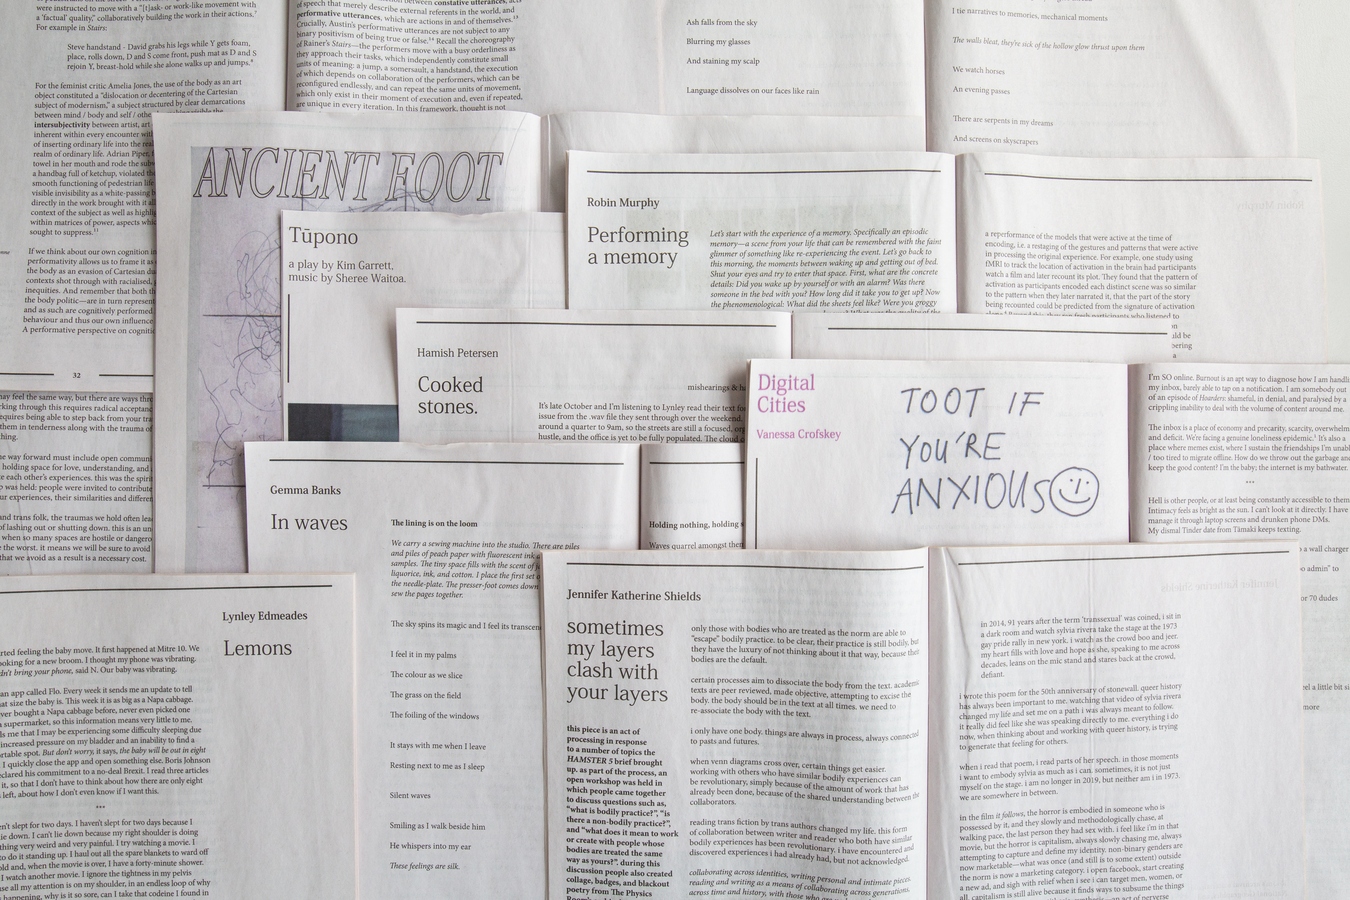 were instructed to move with a "[t]ask- or work-like movement with
a 'factual quality,' collaboratively building the work in their actions.⁷
For example in Stairs:
Steve handstand - David grabs his legs while Y gets foam,
place, rolls down, D and S come front, push mat as D and S
rejoin Y, breast-hold while she alone walks up and jumps.⁸
For the feminist critic Amelia Jones, the use of the body as an art
object constituted a "dislocation or decentering of the Cartesian
subject of modernism," a subject structured by clear demarcations
between mind / body and self / other
intersubjectivity between artist, art
inherent within every encounter with
of inserting ordinary life into the
realm of ordinary life. Adrian Piper,
towel in her mouth and rode the
a handbag full of ketchup, violated
smooth functioning of pedestrian life
visible invisibility as a white-passing
directly in the work brought with it all
context of the subject as well as
within matrices of power, aspects
sought to suppress.¹¹
If we think about our own cognition
performativity allows us to frame it as
the body as an evasion of Cartesian
contexts shot through with racialised,
inequities. And remember that both
the body politic—are in turn
and as such are cognitively performed
behaviour and thus our own influence
A performative perspective on
32
of speech that merely describe external referents in the world, and
performative utterances, which are actions in and of themselves.¹³
Crucially, Austin's performative utterances are not subject to any
binary positivism of being true or false.¹⁴ Recall the choreography
of Rainer's Stairs—the performers move with a busy orderliness as
they approach their tasks, which independently constitute small
units of meaning: a jump, a somersault, a handstand, the execution
of which depends on collaboration of the performers, which can be
reconfigured endlessly, and can repeat the same units of movement,
which only exist in their moment of execution and, even if repeated,
are unique in every iteration. In this framework, thought is not
Ash falls from the sky
Blurring my glasses
And staining my scalp
Language dissolves on our faces like rain
I tie narratives to memories, mechanical moments
The walls bleat, they're sick of the hollow glow thrust upon them
We watch horses
An evening passes
There are serpents in my dreams
And screens on skyscrapers
ANCIENT FOOT
Tūpono
a play by Kim Garrett,
music by Sheree Waitoa.
Robin Murphy
Performing
a memory
Let's start with the experience of a memory. Specifically an episodic
memory—a scene from your life that can be remembered with the faint
glimmer of something like re-experiencing the event. Let's go back to
this morning, the moments between waking up and getting out of bed.
Shut your eyes and try to enter that space. First, what are the concrete
details: Did you wake up by yourself or with an alarm? Was there
someone in the bed with you? How long did it take you to get up? Now
the phenomenological: What did the sheets feel like? Were you groggy
a reperformance of the models that were active at the time of
encoding, i.e. a restaging of the gestures and patterns that were active
in processing the original experience. For example, one study using
fMRI to track the location of activation in the brain had participants
watch a film and later recount its plot. They found that the pattern of
activation as participants encoded each distinct scene was so similar
to the pattern when they later narrated it, that the part of the story
being recounted could be predicted from the signature of activation
Hamish Petersen
Cooked
stones.
mishearings &
It's late October and I'm listening to Lynley read their text
issue from the .wav file they sent through over the weekend.
around a quarter to 9am, so the streets are still a focused,
hustle, and the office is yet to be fully populated. The cloud
Digital
Cities
Vanessa Crofskey
TOOT IF
YOU'RE
ANXIOUS
I'm SO online. Burnout is an apt way to diagnose how I am
my inbox, barely able to tap on a notification. I am somebody out
of an episode of Hoarders: shameful, in denial, and paralysed by a
crippling inability to deal with the volume of content around me.
The inbox is a place of economy and precarity, scarcity, overwhelm
and deficit. We're facing a genuine loneliness epidemic.¹ It's also a
place where memes exist, where I sustain the friendships I'm
/ too tired to migrate offline. How do we throw out the garbage and
keep the good content? I'm the baby; the internet is my bathwater.
***
Hell is other people, or at least being constantly accessible to them.
Intimacy feels as bright as the sun. I can't look at it directly. I have
manage it through laptop screens and drunken phone DMs.
My dismal Tinder date from Tāmaki keeps texting.
a wall charger
admin" to
or 70 dudes
feel a little bit
more
may feel the same way, but there are ways
working through this requires radical acceptance
requires being able to step back from your
them in tenderness along with the trauma of
way forward must include open
holding space for love, understanding, and
each other's experiences. this was the spirit
was held: people were invited to contribute
our experiences, their similarities and
and trans folk, the traumas we hold often
of lashing out or shutting down. this is an
when so many spaces are hostile or
the worst. it means we will be sure to avoid
that we avoid as a result is a necessary cost.
Gemma Banks
In waves
The lining is on the loom
We carry a sewing machine into the studio. There are piles
and piles of peach paper with fluorescent ink
samples. The tiny space fills with the scent of
liquorice, ink, and cotton. I place the first set
the needle-plate. The presser-foot comes down
sew the pages together.
The sky spins its magic and I feel its
I feel it in my palms
The colour as we slice
The grass on the field
The foiling of the windows
It stays with me when I leave
Resting next to me as I sleep
Silent waves
Smiling as I walk beside him
He whispers into my ear
These feelings are silk.
Holding nothing, holding
Waves quarrel amongst
Lynley Edmeades
Lemons
started feeling the baby move. It first happened at Mitre 10. We
looking for a new broom. I thought my phone was vibrating.
bring your phone, said N. Our baby was vibrating.
an app called Flo. Every week it sends me an update to tell
what size the baby is. This week it is as big as a Napa cabbage.
never bought a Napa cabbage before, never even picked one
supermarket, so this information means very little to me.
tells me that I may be experiencing some difficulty sleeping due
increased pressure on my bladder and an inability to find a
comfortable spot. But don't worry, it says, the baby will be out in eight
I quickly close the app and open something else. Boris Johnson
declared his commitment to a no-deal Brexit. I read three articles
it, so that I don't have to think about how there are only eight
left, about how I don't even know if I want this.
***
haven't slept for two days. I haven't slept for two days because I
lie down. I can't lie down because my right shoulder is doing
something very weird and very painful. I try watching a movie. I
to do it standing up. I haul out all the spare blankets to ward off
cold and, when the movie is over, I have a forty-minute shower.
I watch another movie. I ignore the tightness in my pelvis
all my attention is on my shoulder, in an endless loop of why
happening, why is it so sore, can I take that codeine I found in
Jennifer Katherine Shields
sometimes
my layers
clash with
your layers
this piece is an act of
processing in response
to a number of topics the
HAMSTER 5 brief brought
up. as part of the process, an
open workshop was held in
which people came together
to discuss questions such as,
"what is bodily practice?", "is
there a non-bodily practice?",
and "what does it mean to work
or create with people whose
bodies are treated the same
way as yours?". during this
discussion people also created
collage, badges, and blackout
poetry from The Physics
only those with bodies who are treated as the norm are able to
"escape" bodily practice. to be clear, their practice is still bodily, but
they have the luxury of not thinking about it that way, because their
bodies are the default.
certain processes aim to dissociate the body from the text. academic
texts are peer reviewed, made objective, attempting to excise the
body. the body should be in the text at all times. we need to
re-associate the body with the text.
i only have one body. things are always in process, always connected
to pasts and futures.
when venn diagrams cross over, certain things get easier.
working with others who have similar bodily experiences can
be revolutionary, simply because of the amount of work that has
already been done, because of the shared understanding between the
collaborators.
reading trans fiction by trans authors changed my life. this form
of collaboration between writer and reader who both have similar
bodily experiences has been revolutionary. i have encountered and
discovered experiences i had already had, but not acknowledged.
collaborating across identities, writing personal and intimate pieces.
reading and writing as a means of collaborating across generations.
across time and history, with those who
in 2014, 91 years after the term 'transsexual' was coined, i sit in
a dark room and watch sylvia rivera take the stage at the 1973
gay pride rally in new york. i watch as the crowd boo and jeer.
my heart fills with love and hope as she, speaking to me across
decades, leans on the mic stand and stares back at the crowd,
defiant.
i wrote this poem for the 50th anniversary of stonewall. queer history
has always been important to me. watching that video of sylvia rivera
changed my life and set me on a path i was always meant to follow.
it really did feel like she was speaking directly to me. everything i do
now, when thinking about and working with queer history, is trying
to generate that feeling for others.
when i read that poem, i read parts of her speech. in those moments
i want to embody sylvia as much as i can. sometimes, it is not just
myself on the stage. i am no longer in 2019, but neither am i in 1973.
we are somewhere in between.
in the film it follows, the horror is embodied in someone who is
possessed by it, and they slowly and methodologically chase, at
walking pace, the last person they had sex with. i feel like i'm in that
movie, but the horror is capitalism, always slowly chasing me, always
attempting to capture and define my identity. non-binary genders are
now marketable—what was once (and still is to some extent) outside
the norm is now a marketing category. i open facebook, start creating
a new ad, and sigh with relief when i see i can target men, women, or
all. capitalism is still alive because it finds ways to subsume the things